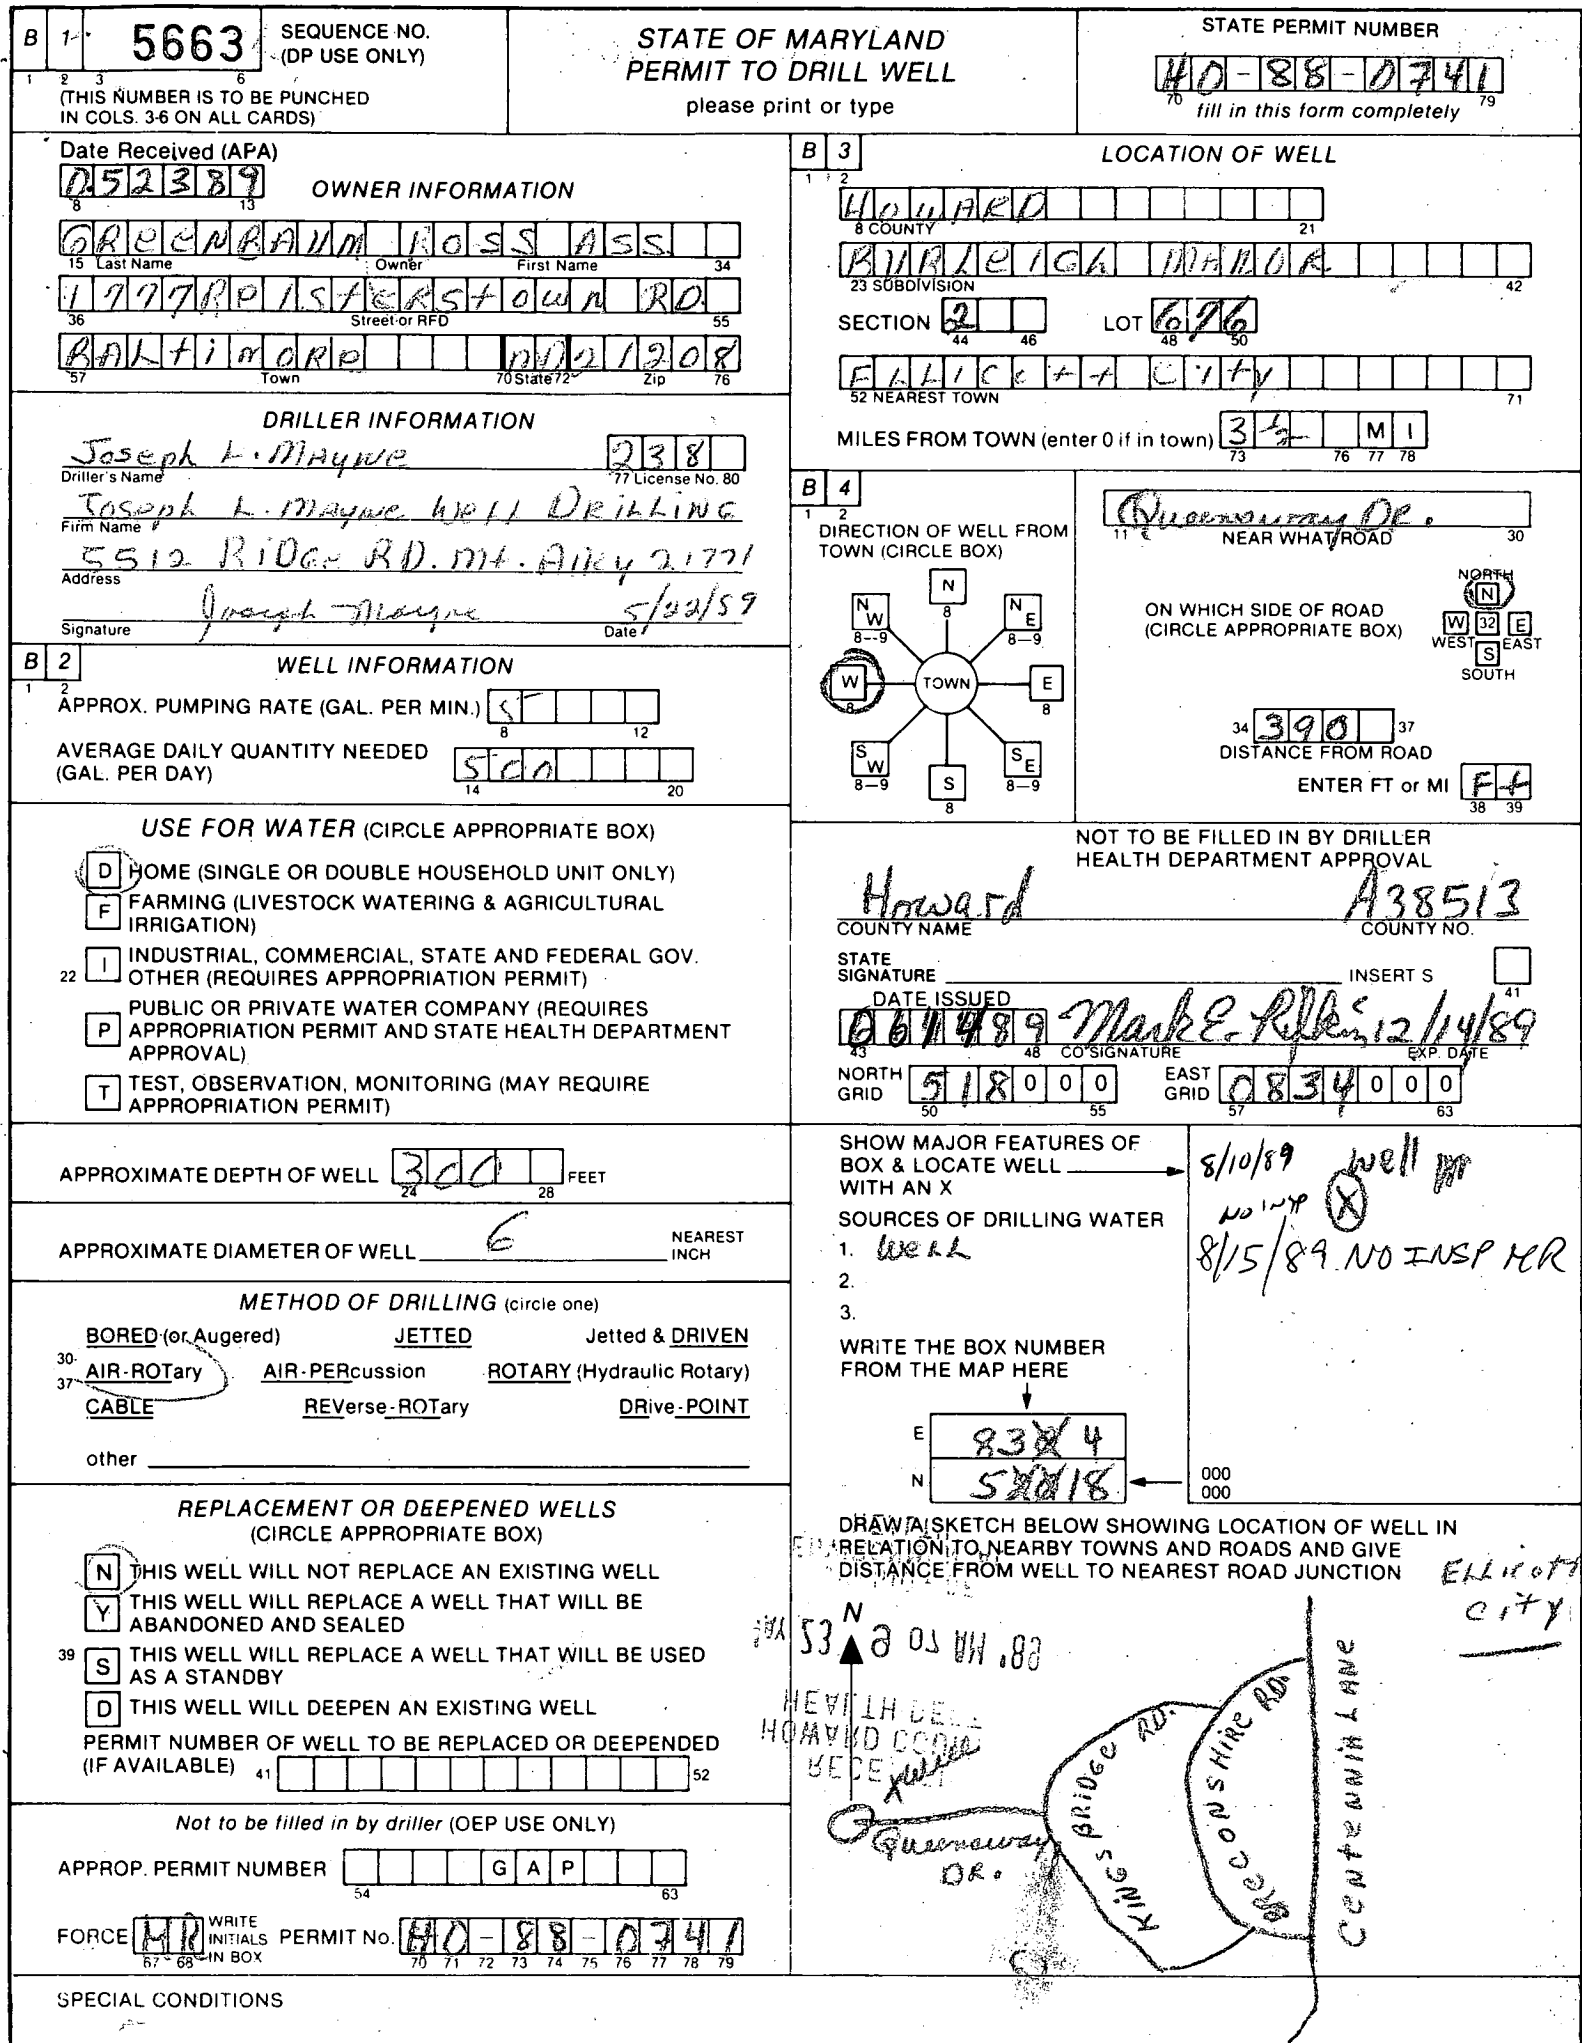 B 1 5663 SEQUENCE NO.
(DP USE ONLY)
1 2 3 6
(THIS NUMBER IS TO BE PUNCHED
IN COLS. 3-6 ON ALL CARDS)
STATE OF MARYLAND
PERMIT TO DRILL WELL
please print or type
STATE PERMIT NUMBER
HO-88-0741
70 79
fill in this form completely
Date Received (APA)
052389
8 13
OWNER INFORMATION
GREENBAUM ROSS ASS.
15 Last Name Owner First Name 34
1777 Reisterstown RD.
36 Street or RFD 55
BALtimore MD 21208
57 Town 70 State 72 Zip 76
DRILLER INFORMATION
Joseph L. Mayne 238
Driller's Name 77 License No. 80
Joseph L. Mayne Well DRILLING
Firm Name
5512 RIDGe RD. Mt. AIRy 21771
Address
Joseph Mayne 5/22/89
Signature Date
B 2 WELL INFORMATION
1 2
APPROX. PUMPING RATE (GAL. PER MIN.) 5
8 12
AVERAGE DAILY QUANTITY NEEDED
(GAL. PER DAY) 500
14 20
USE FOR WATER (CIRCLE APPROPRIATE BOX)
D HOME (SINGLE OR DOUBLE HOUSEHOLD UNIT ONLY)
F FARMING (LIVESTOCK WATERING & AGRICULTURAL
IRRIGATION)
22 I INDUSTRIAL, COMMERCIAL, STATE AND FEDERAL GOV.
OTHER (REQUIRES APPROPRIATION PERMIT)
P PUBLIC OR PRIVATE WATER COMPANY (REQUIRES
APPROPRIATION PERMIT AND STATE HEALTH DEPARTMENT
APPROVAL)
T TEST, OBSERVATION, MONITORING (MAY REQUIRE
APPROPRIATION PERMIT)
APPROXIMATE DEPTH OF WELL 300 FEET
24 28
APPROXIMATE DIAMETER OF WELL 6 NEAREST
INCH
METHOD OF DRILLING (circle one)
BORED (or Augered) JETTED Jetted & DRIVEN
30-37 AIR-ROTary AIR-PERcussion ROTARY (Hydraulic Rotary)
CABLE REVerse-ROTary DRive-POINT
other
REPLACEMENT OR DEEPENED WELLS
(CIRCLE APPROPRIATE BOX)
N THIS WELL WILL NOT REPLACE AN EXISTING WELL
Y THIS WELL WILL REPLACE A WELL THAT WILL BE
ABANDONED AND SEALED
39 S THIS WELL WILL REPLACE A WELL THAT WILL BE USED
AS A STANDBY
D THIS WELL WILL DEEPEN AN EXISTING WELL
PERMIT NUMBER OF WELL TO BE REPLACED OR DEEPENDED
(IF AVAILABLE) 41 52
Not to be filled in by driller (OEP USE ONLY)
APPROP. PERMIT NUMBER G A P
54 63
FORCE MR WRITE INITIALS IN BOX PERMIT No. HO-88-0741
67 68 70 71 72 73 74 75 76 77 78 79
SPECIAL CONDITIONS
B 3 LOCATION OF WELL
1 2
HOWARD
8 COUNTY 21
BURLeIGh MANOR
23 SUBDIVISION 42
SECTION 2 LOT 676
44 46 48 50
ELLICott CIty
52 NEAREST TOWN 71
MILES FROM TOWN (enter 0 if in town) 3 1/2 M I
73 76 77 78
B 4
1 2
DIRECTION OF WELL FROM
TOWN (CIRCLE BOX)
N 8
NW 8-9 NE 8-9
W 8 TOWN E 8
SW 8-9 SE 8-9
S 8
Queensway DR.
11 NEAR WHAT ROAD 30
ON WHICH SIDE OF ROAD
(CIRCLE APPROPRIATE BOX)
NORTH
N
W 32 E
WEST EAST
S
SOUTH
34 390 37
DISTANCE FROM ROAD
ENTER FT or MI Ft
38 39
NOT TO BE FILLED IN BY DRILLER
HEALTH DEPARTMENT APPROVAL
Howard A38513
COUNTY NAME COUNTY NO.
STATE
SIGNATURE INSERT S
41
DATE ISSUED
061489 Mark E. Rifkin 12/14/89
43 48 CO SIGNATURE EXP. DATE
NORTH GRID 518000 EAST GRID 0834000
50 55 57 63
SHOW MAJOR FEATURES OF
BOX & LOCATE WELL
WITH AN X
SOURCES OF DRILLING WATER
1. WeLL
2.
3.
8/10/89 well
NO INSP X
8/15/89 NO INSP MR
WRITE THE BOX NUMBER
FROM THE MAP HERE
E 83 4
N 5 18
000
000
DRAW A SKETCH BELOW SHOWING LOCATION OF WELL IN
RELATION TO NEARBY TOWNS AND ROADS AND GIVE
DISTANCE FROM WELL TO NEAREST ROAD JUNCTION
ELLicott
city
N
HEALTH DEPT
HOWARD COUN
RECE
X well
Queensway
DR.
KINGS BRIDGe RD.
BReCONSHIRe RD.
CeNteNNIA LANe